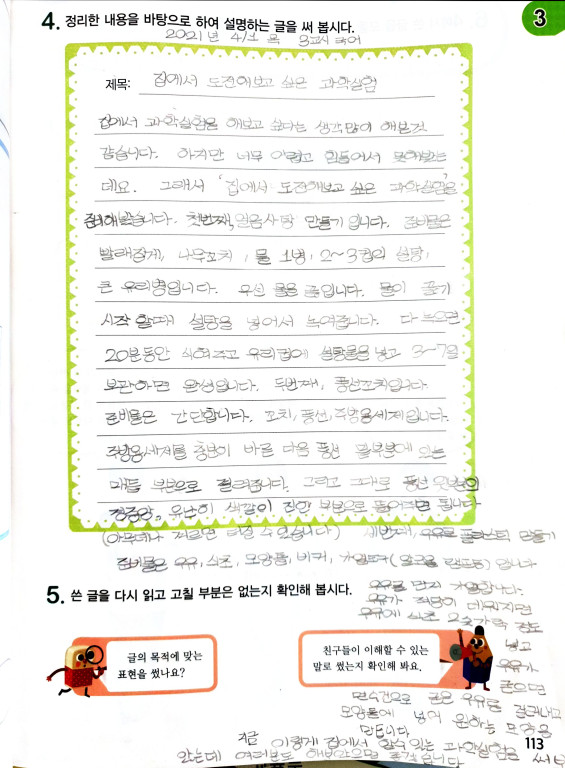 3
4. 정리한 내용을 바탕으로 하여 설명하는 글을 써 봅시다.
2021년 4/1 목 3교시 국어
제목: 집에서 도전해보고 싶은 과학실험
집에서 과학실험을 해보고 싶다는 생각 많이 해본것
같습니다. 하지만 너무 어렵고 힘들어서 못해봤는
데요. 그래서 '집에서 도전해보고 싶은 과학실험'을
준비해봤습니다. 첫번째, 얼음사탕 만들기 입니다. 준비물은
빨래집게, 나무꼬치, 물 1병, 2~3컵의 설탕,
큰 유리병입니다. 우선 물을 끓입니다. 물이 끓기
시작 할때 설탕을 넣어서 녹여줍니다. 다 녹으면
20분동안 식혀주고 유리컵에 설탕물을 넣고 3~7일
보관하면 완성입니다. 두번째, 풍선꼬치입니다.
준비물은 간단합니다. 꼬치, 풍선, 주방용세제입니다.
주방용세제를 충분이 바른 다음 풍선 끝부분에 있는
매듭 부분으로 찔러줍니다. 그리고 그대로 풍선 윗부분의
정중앙, 유난히 색깔이 진한 부분으로 뚫어주면 됩니다
(아무데나 찌르면 터질 수 있습니다) 세번째, 우유로 플라스틱 만들기
준비물은 우유, 식초, 모양틀, 비커, (알코올 램프등) 입니다
5. 쓴 글을 다시 읽고 고칠 부분은 없는지 확인해 봅시다.
우유를 먼저 가열합니다.
우유가 적당히 데워지면
우유에 식초 2숟가락 정도
넣고
우유가
굳으면
글의 목적에 맞는
표현을 썼나요?
친구들이 이해할 수 있는
말로 썼는지 확인해 봐요.
면수건으로 굳은 우유를 걸러내고
모양틀에 넣어 원하는 모양을
만듭니다
지금 이렇게 집에서 할수 있는 과학실험을 써 봤
았는데 여러분도 해보았으면 좋겠습니다
113